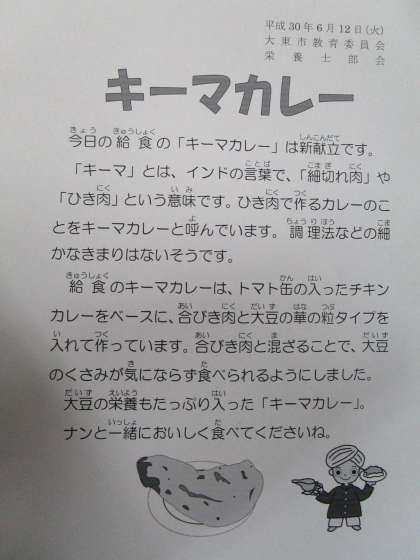 平成30年6月12日(火)
大東市教育委員会
栄養士部会
キーマカレー
今日の給食の「キーマカレー」は新献立です。
「キーマ」とは、インドの言葉で、「細切れ肉」や
「ひき肉」という意味です。ひき肉で作るカレーのこ
とをキーマカレーと呼んでいます。調理法などの細
かなきまりはないそうです。
給食のキーマカレーは、トマト缶の入ったチキン
カレーをベースに、合びき肉と大豆の華の粒タイプを
入れて作っています。合びき肉と混ざることで、大豆
のくさみが気にならず食べられるようにしました。
大豆の栄養もたっぷり入った「キーマカレー」。
ナンと一緒においしく食べてくださいね。